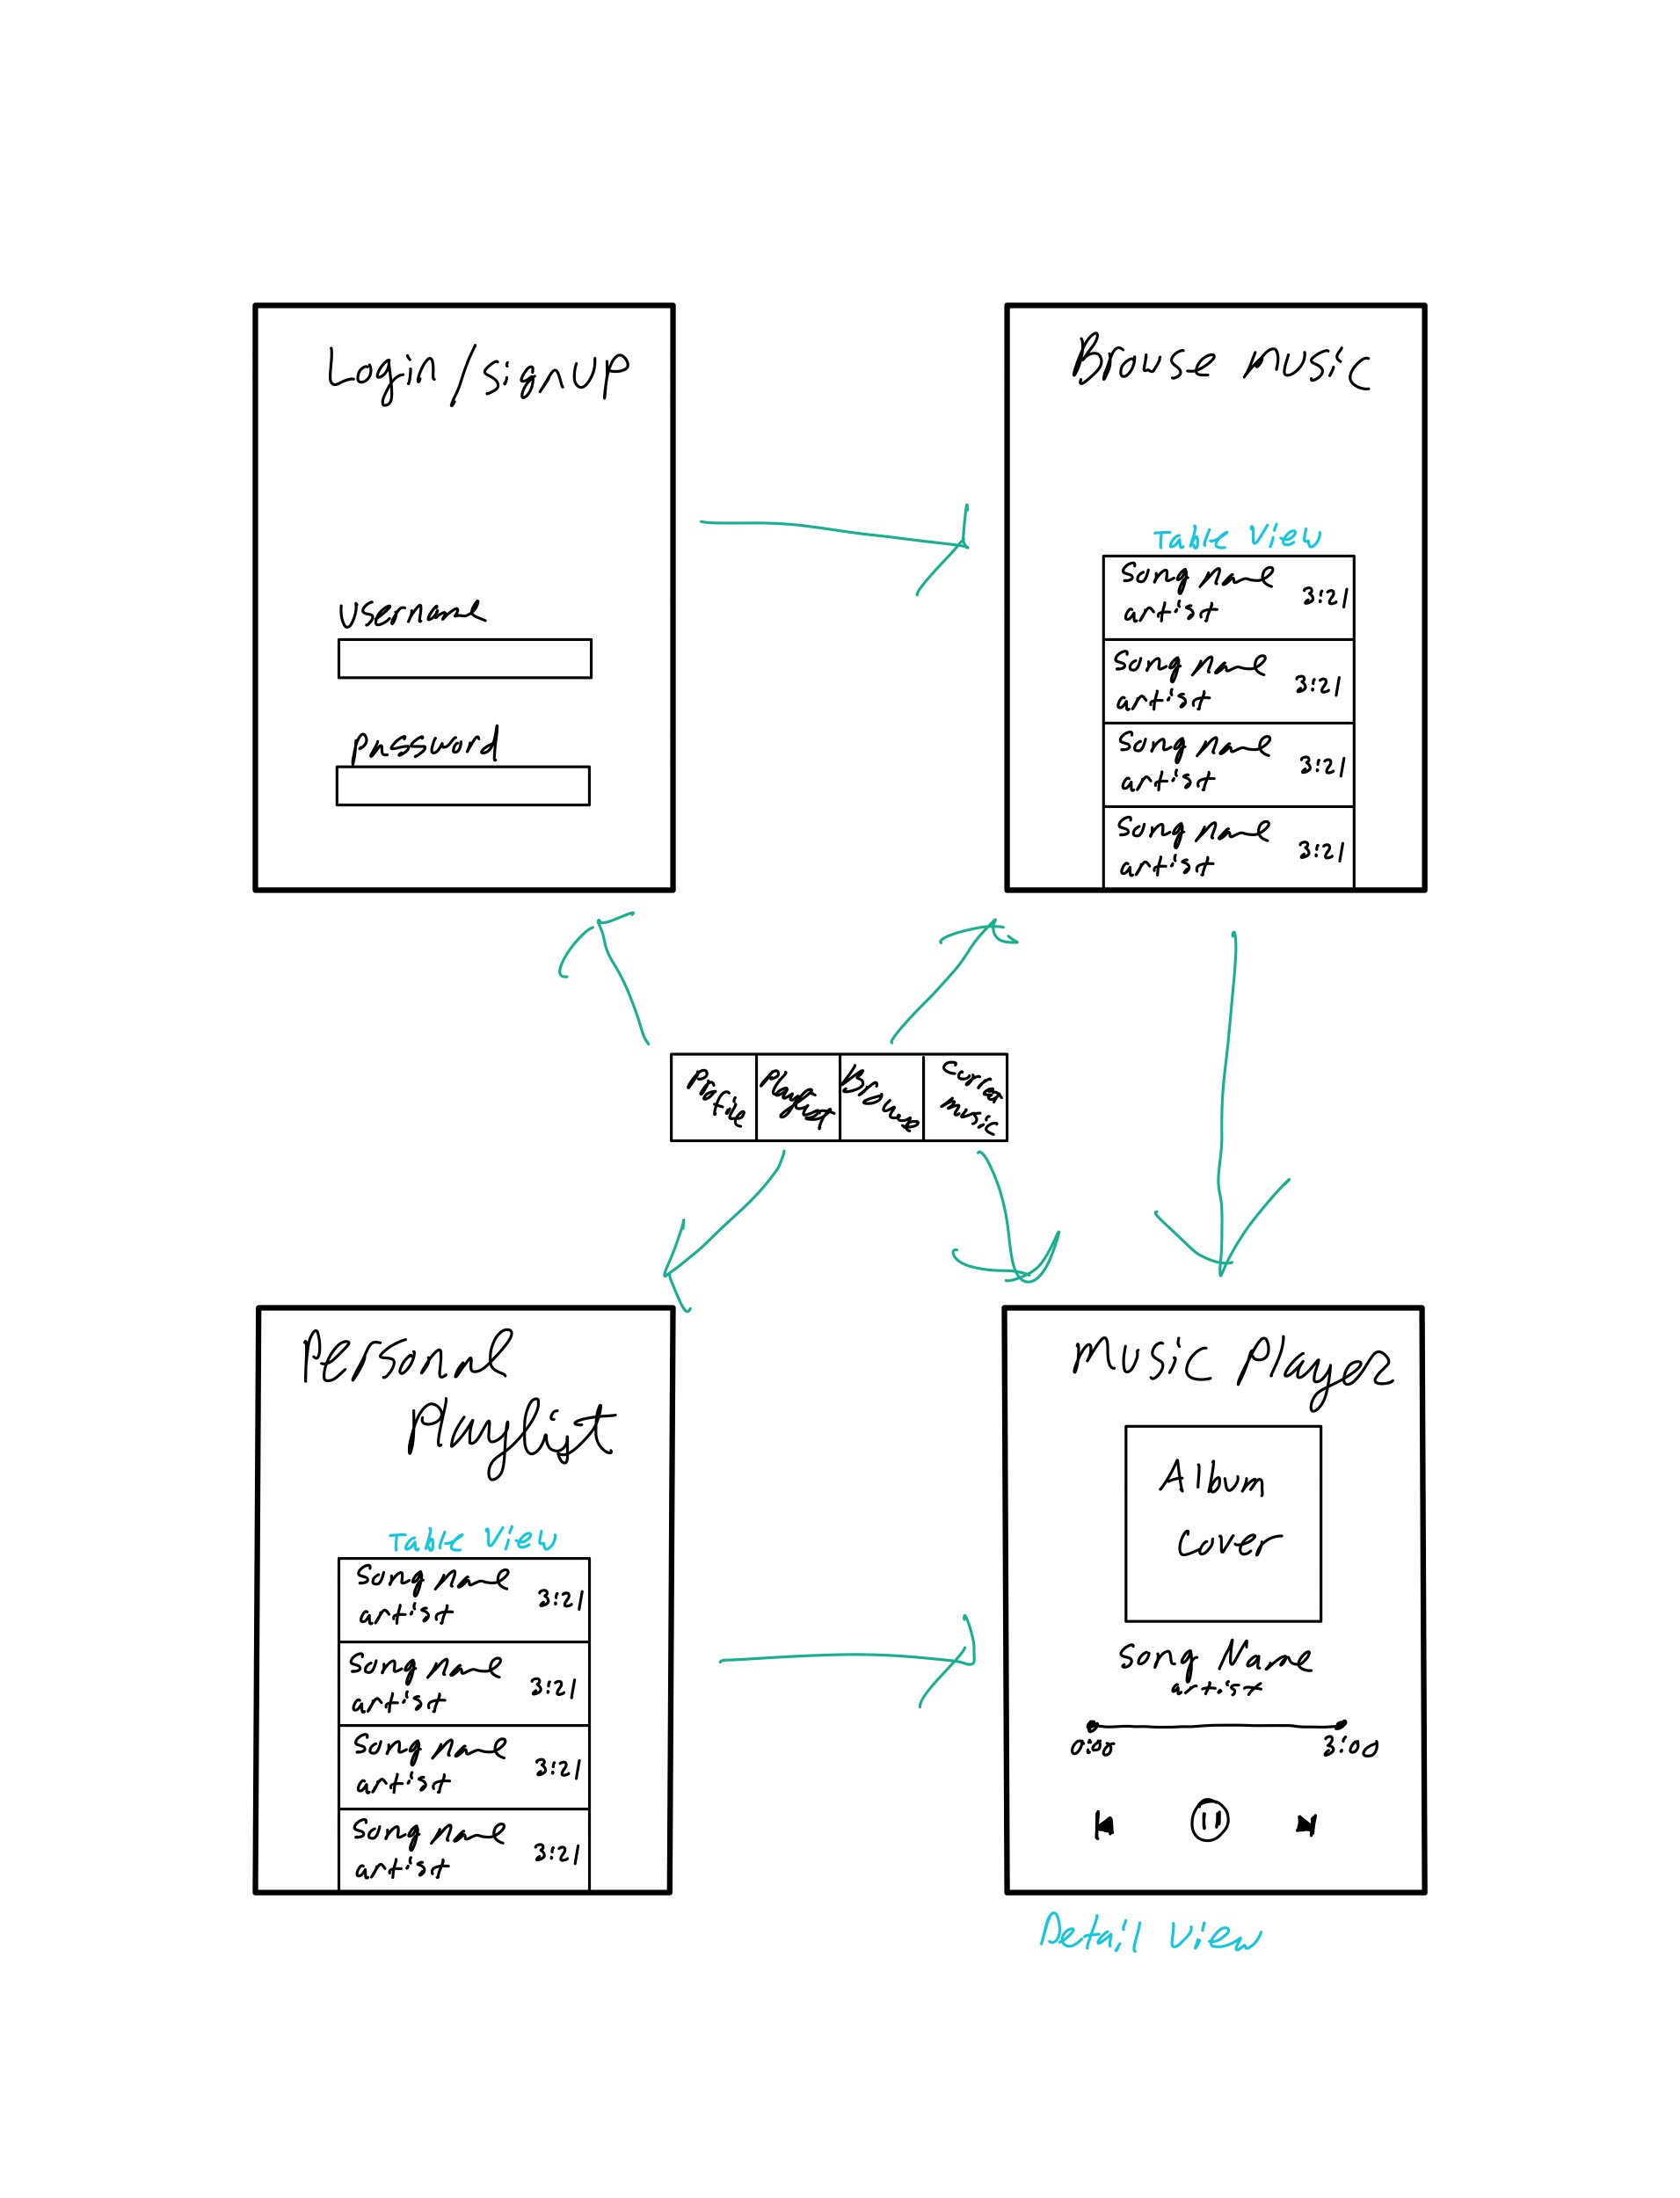 Login/signup
username
password
Browse music
Table View
Song name
artist
3:21
Song name
artist
3:21
Song name
artist
3:21
Song name
artist
3:21
Profile
Playlist
Browse
Current
music
Personal
Playlist
Table View
Song name
artist
3:21
Song name
artist
3:21
Song name
artist
3:21
Song name
artist
3:21
Music Player
Album
Cover
Song Name
artist
0:00
3:00
Detail View